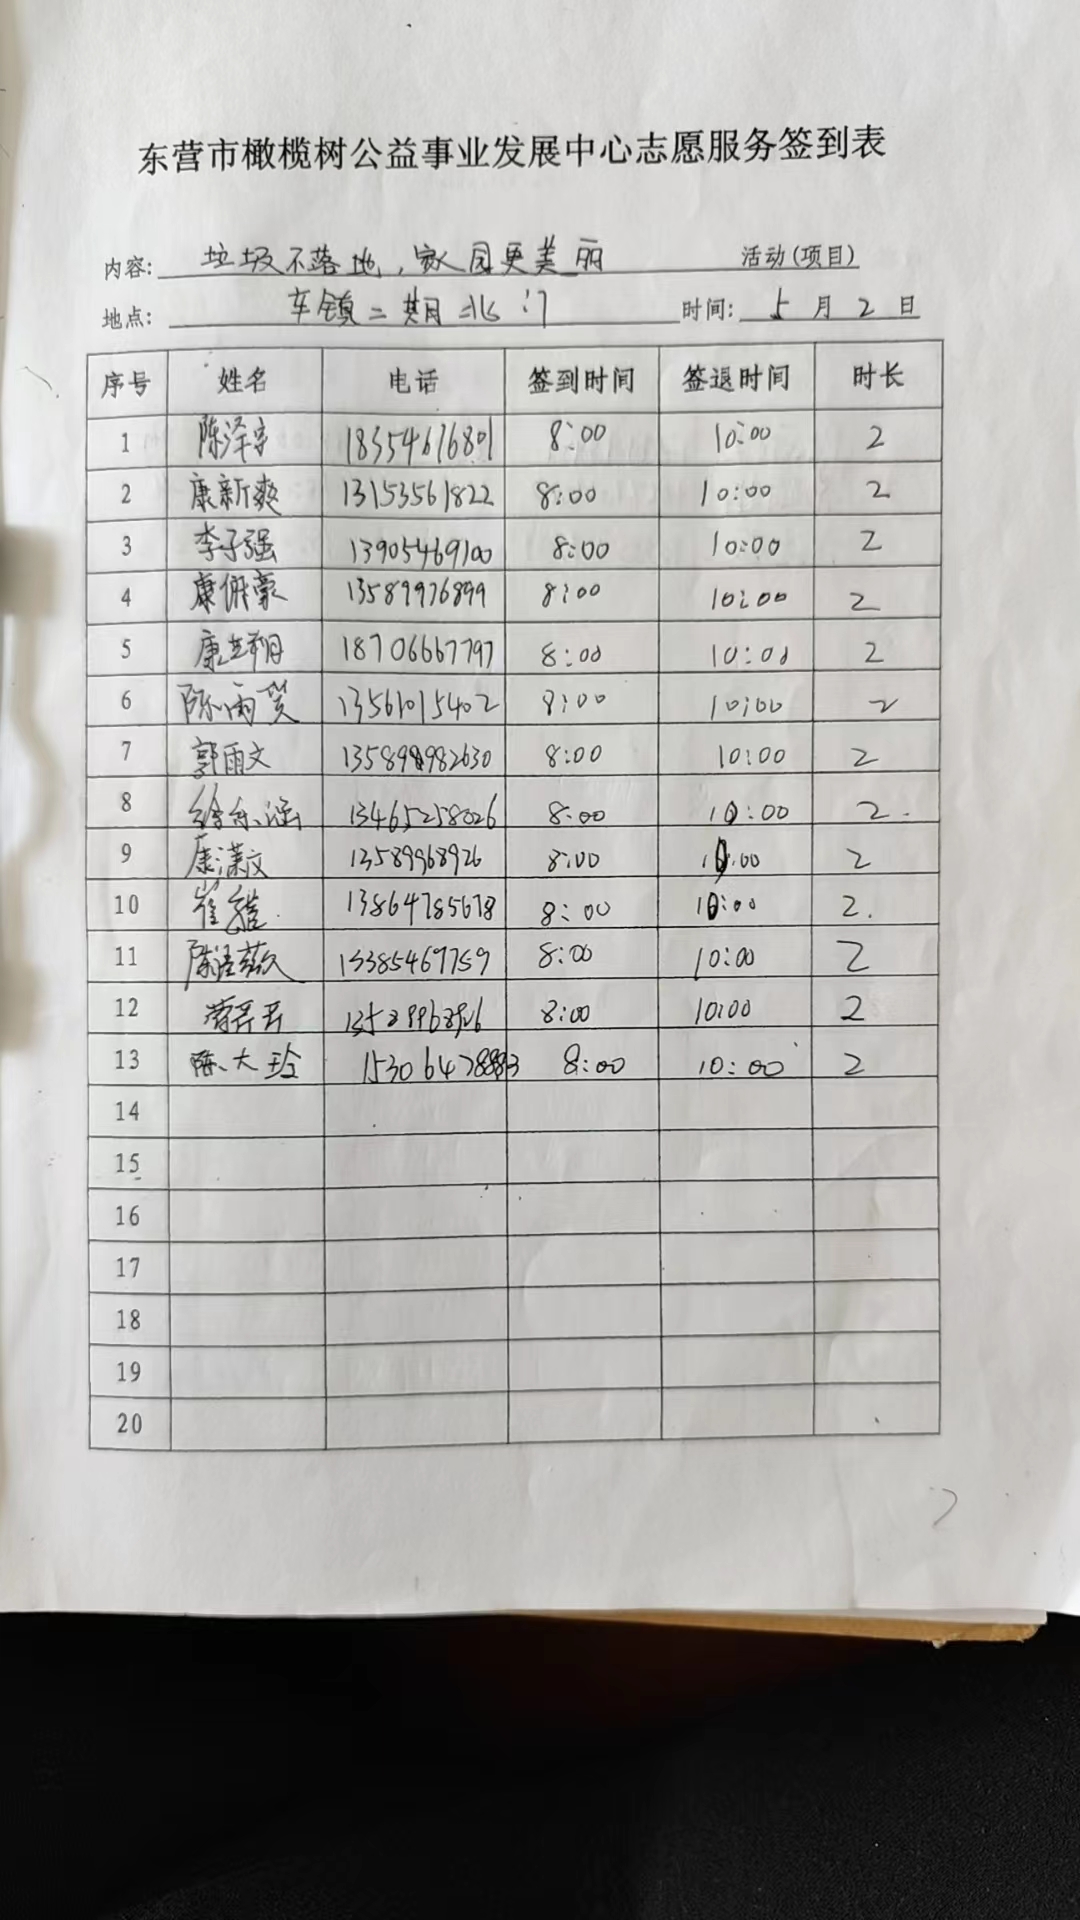 东营市橄榄树公益事业发展中心志愿服务签到表
内容: 垃圾不落地,家园更美丽 活动(项目)
地点: 车镇二期北门 时间: 5月2日
序号 姓名 电话 签到时间 签退时间 时长
1 陈泽宇 18354676801 8:00 10:00 2
2 康新爽 13153561822 8:00 10:00 2
3 李子强 13905469100 8:00 10:00 2
4 康 豪 13589976899 8:00 10:00 2
5 康 翔 18706667797 8:00 10:00 2
6 陈雨 13561015402 8:00 10:00 2
7 郭雨文 8:00 10:00 2
8 徐 涵 13465258026 8:00 10:00 2.
9 康潇文 13589968926 8:00 10:00 2
10 崔 13864785678 8:00 10:00 2.
11 陈 13385469759 8:00 10:00 2
12 8:00 10:00 2
13 陈大玲 8:00 10:00 2
14
15
16
17
18
19
20